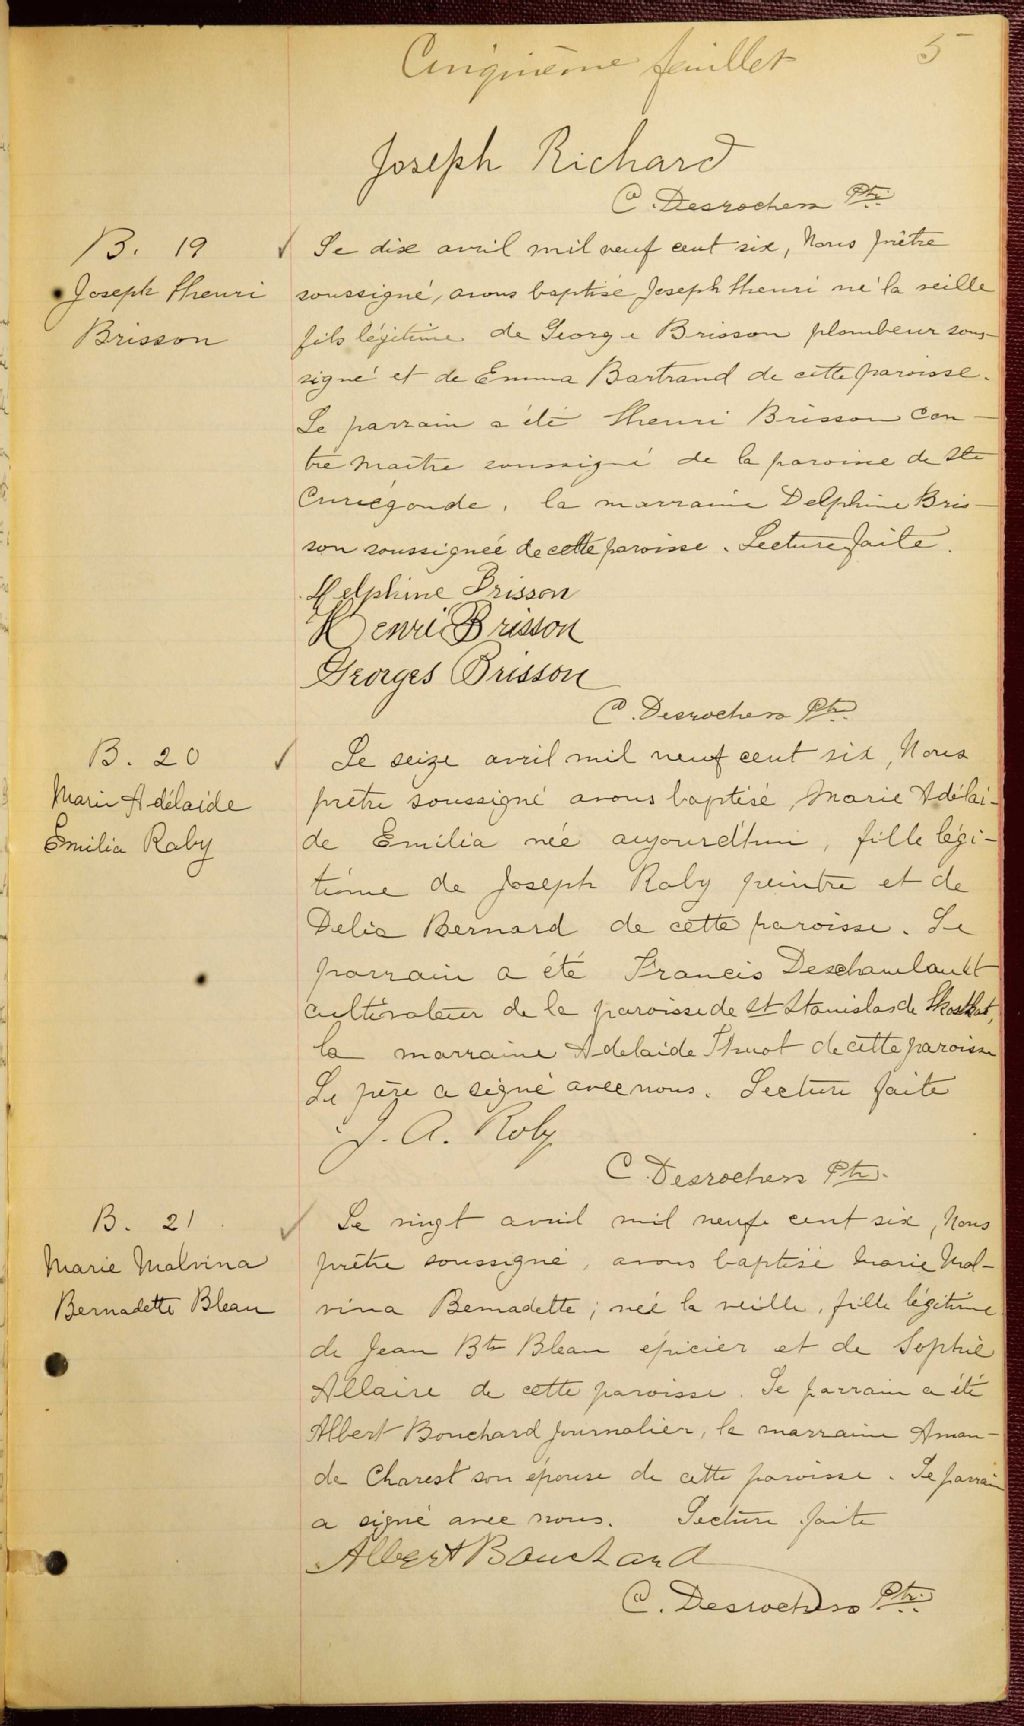 Cinquième feuillet 5
Joseph Richard
C. Desrochers Ptr.
B. 19
Joseph Henri
Brisson
Le dix avril mil neuf cent six, Nous prêtre
soussigné, avons baptisé Joseph Henri né la veille
fils légitime de George Brisson plombeur sous-
signé et de Emma Bartrand de cette paroisse.
Le parrain a été Henri Brisson con-
tre maître soussigné de la paroisse de Ste
Cunégonde, la marraine Delphine Bris-
son soussignée de cette paroisse. Lecture faite.
Delphine Brisson
Henri Brisson
Georges Brisson
C. Desrochers Ptr.
B. 20
Marie Adélaide
Emilia Raby
Le seize avril mil neuf cent six, Nous
prêtre soussigné avons baptisé Marie Adélai-
de Emilia née aujourd'hui, fille légi-
time de Joseph Raby peintre et de
Delia Bernard de cette paroisse. Le
parrain a été Francis Deschambault
cultivateur de la paroisse de St Stanislas de
la marraine Adelaide Thuot de cette paroisse
Le père a signé avec nous. Lecture faite
J. A. Roby
C. Desrochers Ptr.
B. 21
Marie Malvina
Bernadette Bleau
Le vingt avril mil neuf cent six, Nous
prêtre soussigné, avons baptisé Marie Mal-
vina Bernadette, née la veille, fille légitime
de Jean Bte Bleau épicier et de Sophie
Allaire de cette paroisse. Le parrain a été
Albert Bouchard journalier, la marraine Aman-
da Charest son épouse de cette paroisse. Le parrain
a signé avec nous. Lecture faite
Albert Bouchard
C. Desrochers Ptr.